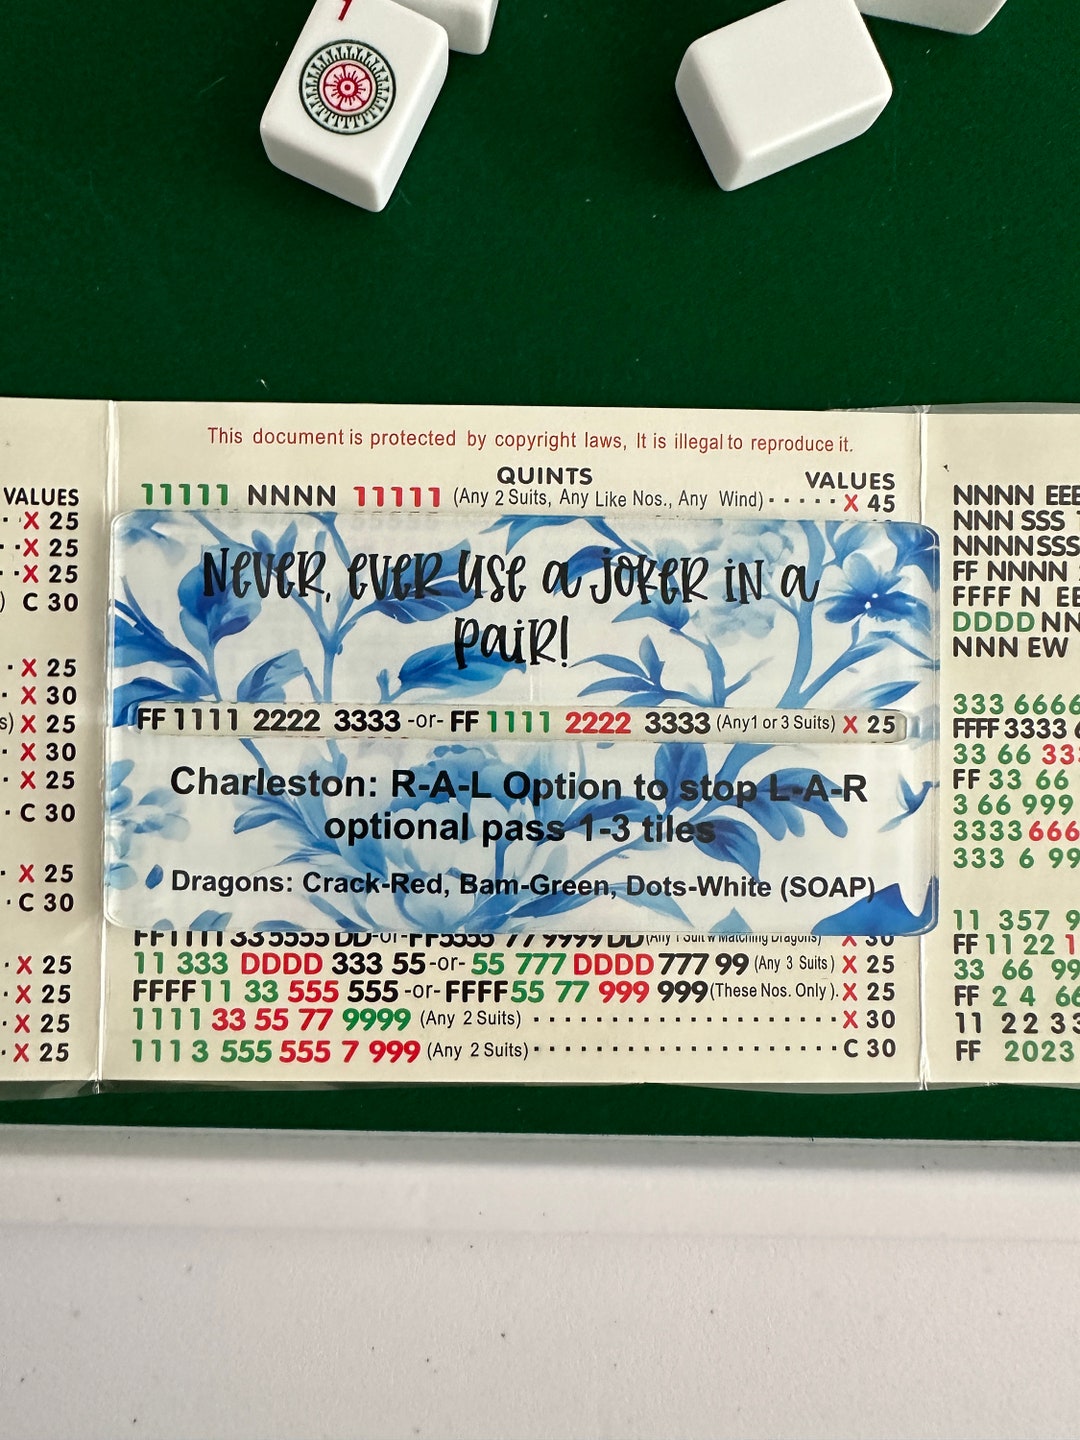 1
This document is protected by copyright laws, It is illegal to reproduce it.
QUINTS
VALUES
11111 NNNN 11111 (Any 2 Suits, Any Like Nos., Any Wind) ····· X 45
NEVER, EVER USE a JOKER IN a
PAIR!
FF 1111 2222 3333 -or- FF 1111 2222 3333 (Any1 or 3 Suits) X 25
Charleston: R-A-L Option to stop L-A-R
optional pass 1-3 tiles
Dragons: Crack-Red, Bam-Green, Dots-White (SOAP)
FF1111 33 5555 DD-or-FF5555 77 9999 DD (Any 1 Suit w Matching Dragons) X 30
11 333 DDDD 333 55 -or- 55 777 DDDD 777 99 (Any 3 Suits) X 25
FFFF 11 33 555 555 -or- FFFF 55 77 999 999 (These Nos. Only). X 25
1111 33 55 77 9999 (Any 2 Suits) ···················· X 30
111 3 555 555 7 999 (Any 2 Suits) ···················· C 30
VALUES
· X 25
·· X 25
·· X 25
) C 30
· X 25
· X 30
s) X 25
· X 30
· X 25
· C 30
· X 25
· C 30
· X 25
· X 25
· X 25
· X 25
NNNN EEE
NNN SSS
NNNN SSS
FF NNNN
FFFF N EE
DDDD NN
NNN EW
333 6666
FFFF 3333 6
33 66 333
FF 33 66
3 66 999
3333 666
333 6 99
11 357 9
FF 11 22 1
33 66 99
FF 2 4 66
11 22 33
FF 2023